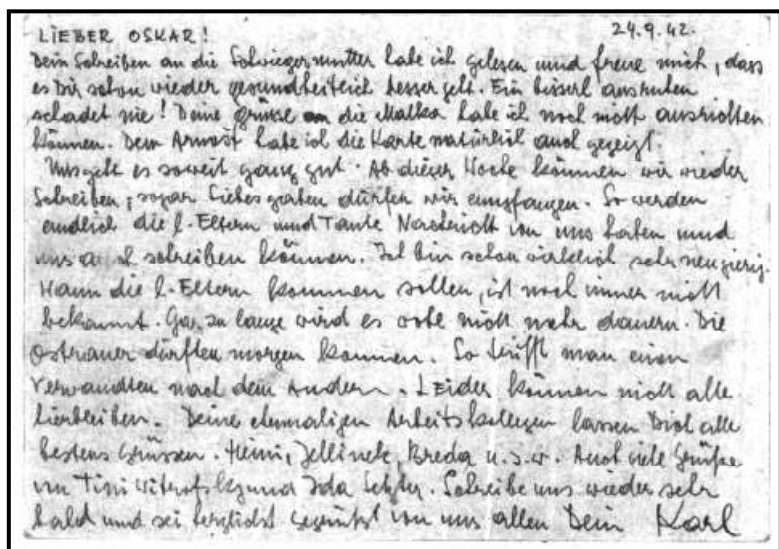 LIEBER OSKAR! 24.9.42.
Dein Schreiben an die Schwiegermutter habe ich gelesen und freue mich, dass
es Dir schon wieder gesundheitlich besser geht. Ein bisserl ausruhen
schadet nie! Deine Grüsse an die Malka habe ich noch nicht ausrichten
können. Dem Arnost habe ich die Karte natürlich auch gezeigt.
Uns geht es soweit ganz gut. Ab dieser Woche können wir wieder
schreiben, sogar Liebesgaben dürfen wir empfangen. So werden
endlich die l. Eltern und Tante Nachricht von uns haben und
uns auch schreiben können. Ich bin schon wirklich sehr neugierig.
Wann die l. Eltern kommen sollen, ist noch immer nicht
bekannt. Gar zu lange wird es nicht mehr dauern. Die
Ostrauer dürften morgen kommen. So trifft man einen
Verwandten nach dem Andern. Leider können nicht alle
hierbleiben. Deine ehemaligen Arbeitskollegen lassen Dich alle
bestens Grüssen. Heini, Jellinek, Breda u.s.w. Auch viele Grüße
von Tini und Ida. Schreibe uns wieder sehr
bald und sei herzlichst gegrüsst von uns allen Dein Karl